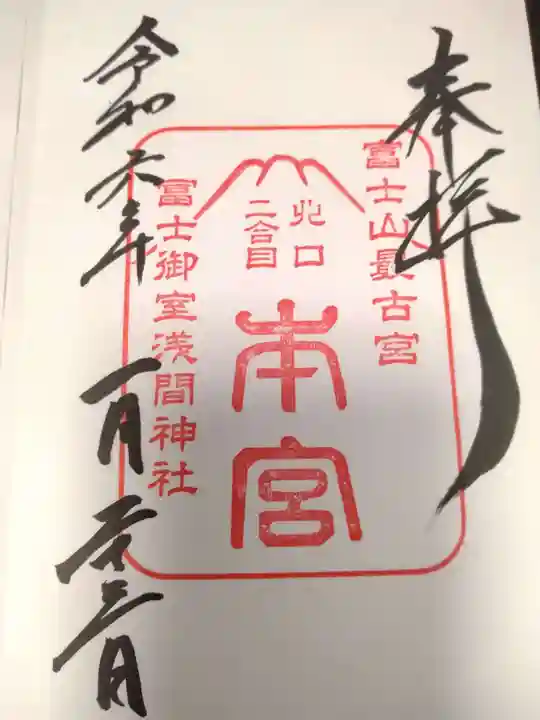 奉拝
冨士山最古宮
北口
二合目
本宮
冨士御室浅間神社
令和六年 一月 二十三日